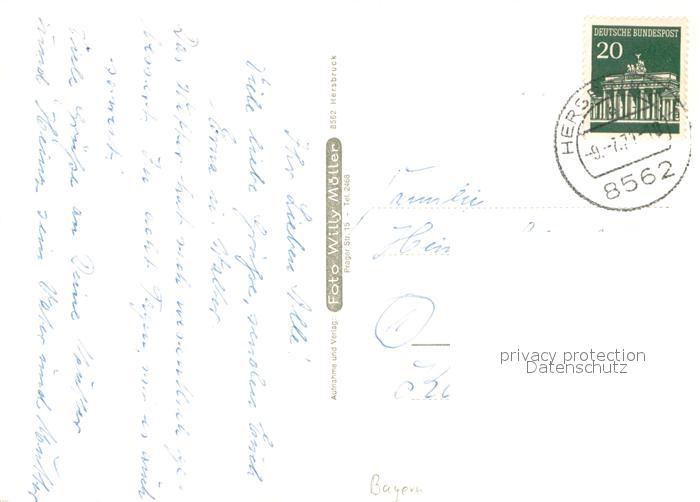 Ihr Lieben Alle!
Viele liebe Grüße, senden Euch
Erna u. Walter
Das Wetter hat sich wesentlich ge-
bessert. In acht Tagen, wo es auch
soweit.
Viele Grüße an Deine Mutter
und Heiner sein Vater und Mutter
Aufnahme und Verlag: Foto Willy Möller 8562 Hersbruck
Prager Str. 15 - Tel. 2468
DEUTSCHE BUNDESPOST
20
-9.-7.71
8562
Familie
Hein
privacy protection
Datenschutz
Bayern